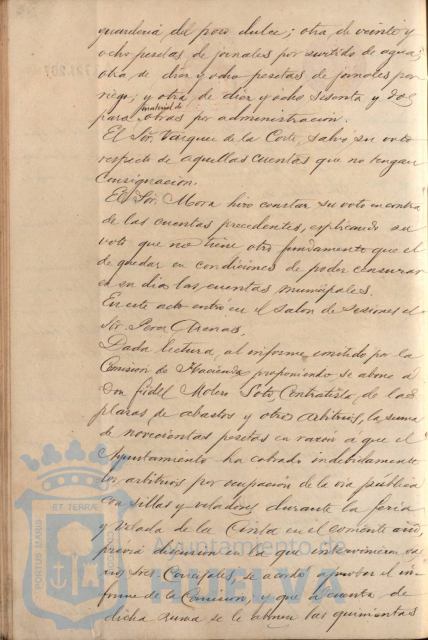 guarderia del pozo dulce; otra de veinte y
ocho pesetas de jornales por surtido de agua;
otra de diez y ocho pesetas de jornales por
riego; y otra de diez y ocho sesenta y dos
para material de obras por administración.
El Sor. Vazquez de la Corte, salvó su voto
respecto de aquellas cuentas que no tengan
consignación.
El Sor. Mora hizo constar su voto en contra
de las cuentas precedentes, esplicando su
voto que no tiene otro fundamento que el
de quedar en condiciones de poder censurar
en su dia las cuentas municipales.
En este acto entró en el salon de sesiones el
Sor. Perez Arenas.
Dada lectura al informe emitido por la
Comision de Hacienda proponiendo se abone a
Don Fidel Molero Soto, Contratista de las
plazas de abastos y otros arbitrios, la suma
de novecientas pesetas en razon a que el
Ayuntamiento ha cobrado indebidamente
los arbitrios por ocupación de la via publica
con sillas y veladores durante la feria
y velada de la Cinta en el corriente año,
previa discusion en la que intervinieron va
rios Sres. Concejales, se acordó aprobar el in
forme de la Comision, y que a cuenta de
dicha suma se le abonen las quinientas
PORTUS MARIS ET TERRAE
Ayuntamiento de